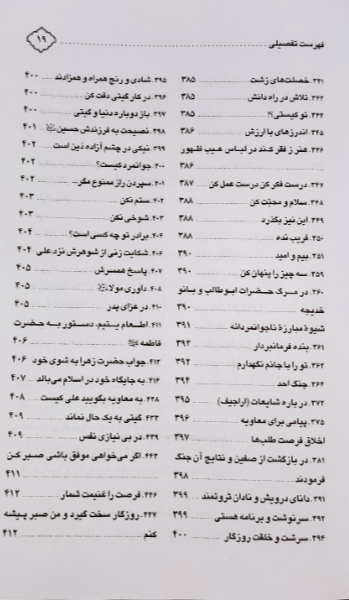 فهرست تفصیلی
۱۹
۳۴۱. خصلت‌های زشت ۳۸۵
۳۴۳. تلاش در راه دانش ۳۸۵
۳۴۴. تو کیستی؟! ۳۸۵
۳۴۵. اندرزهای با ارزش ۳۸۶
۳۴۶. هنر ز فقر کند در لباس عیب ظهور
۳۸۶
۳۴۷. درست فکر کن درست عمل کن ۳۸۷
۳۴۸. سلام و محبّت کن ۳۸۸
۳۴۹. این نیز بگذرد ۳۸۸
۳۵۰. فریب نده ۳۸۸
۳۵۱. بیم و امید ۳۹۰
۳۵۹. سه چیز را پنهان کن ۳۹۰
۳۶۰. در مرگ حضرات ابوطالب و بانو
خدیجه ۳۹۰
شیوهٔ مبارزهٔ ناجوانمردانه ۳۹۱
۳۶۱. بنده فرمانبردار ۳۹۲
۳۶۲. تو را با جانم نگهدارم ۳۹۲
۳۶۴. جنگ احد ۳۹۴
۳۷۲. در باره شایعات (اراجیف) ۳۹۵
۳۷۵. پیامی برای معاویه ۳۹۶
اخلاق فرصت طلب‌ها ۳۹۷
۳۸۱. در بازگشت از صفین و نتایج آن جنگ
فرمودند ۳۹۸
۳۹۱. دانای درویش و نادان ثروتمند ۳۹۹
۳۹۲. سرنوشت و برنامه هستی ۳۹۹
۳۹۴. سرشت و خلقت روزگار ۴۰۰
۳۹۵. شادی و رنج همراه و همزادند ۴۰۰
۳۹۶. در کار گیتی دقت کن ۴۰۰
۳۹۷. باز دوباره دنیا و گیتی ۴۰۰
۳۹۸. نصیحت به فرزندش حسین ۴۰۱
۴۰۱. نیکی در چشم آزاده دَین است ۴۰۲
۴۰۲. جوانمرد کیست؟ ۴۰۲
سپردن راز ممنوع مگر... ۴۰۲
ستم نکن ۴۰۳
شوخی نکن ۴۰۳
برادر تو چه کسی است؟ ۴۰۴
شکایت زنی از شوهرش نزد علی ۴۰۴
۴۰۷. پاسخ همسرش ۴۰۵
۴۰۸. داوری مولا ۴۰۵
۴۱۰. در عزای پدر ۴۰۵
۴۱۱. اطعام یتیم، دستور به حضرت
فاطمه ۴۰۶
۴۱۳. جواب حضرت زهرا به شوی خود ۴۰۶
۴۱۴. به جایگاه خود در اسلام می‌بالد ۴۰۷
به معاویه بگویید علی کیست ۴۰۸
۴۳۳. گیتی به یک حال نماند ۴۰۹
۴۳۹. در بی نیازی نفس ۴۰۹
اگر می‌خواهی موفق باشی صبر کن
۴۱۱
۴۴۶. فرصت را غنیمت شمار ۴۱۲
۴۴۷. روزگار سخت گیرد و من صبر پیشه
کنم ۴۱۲